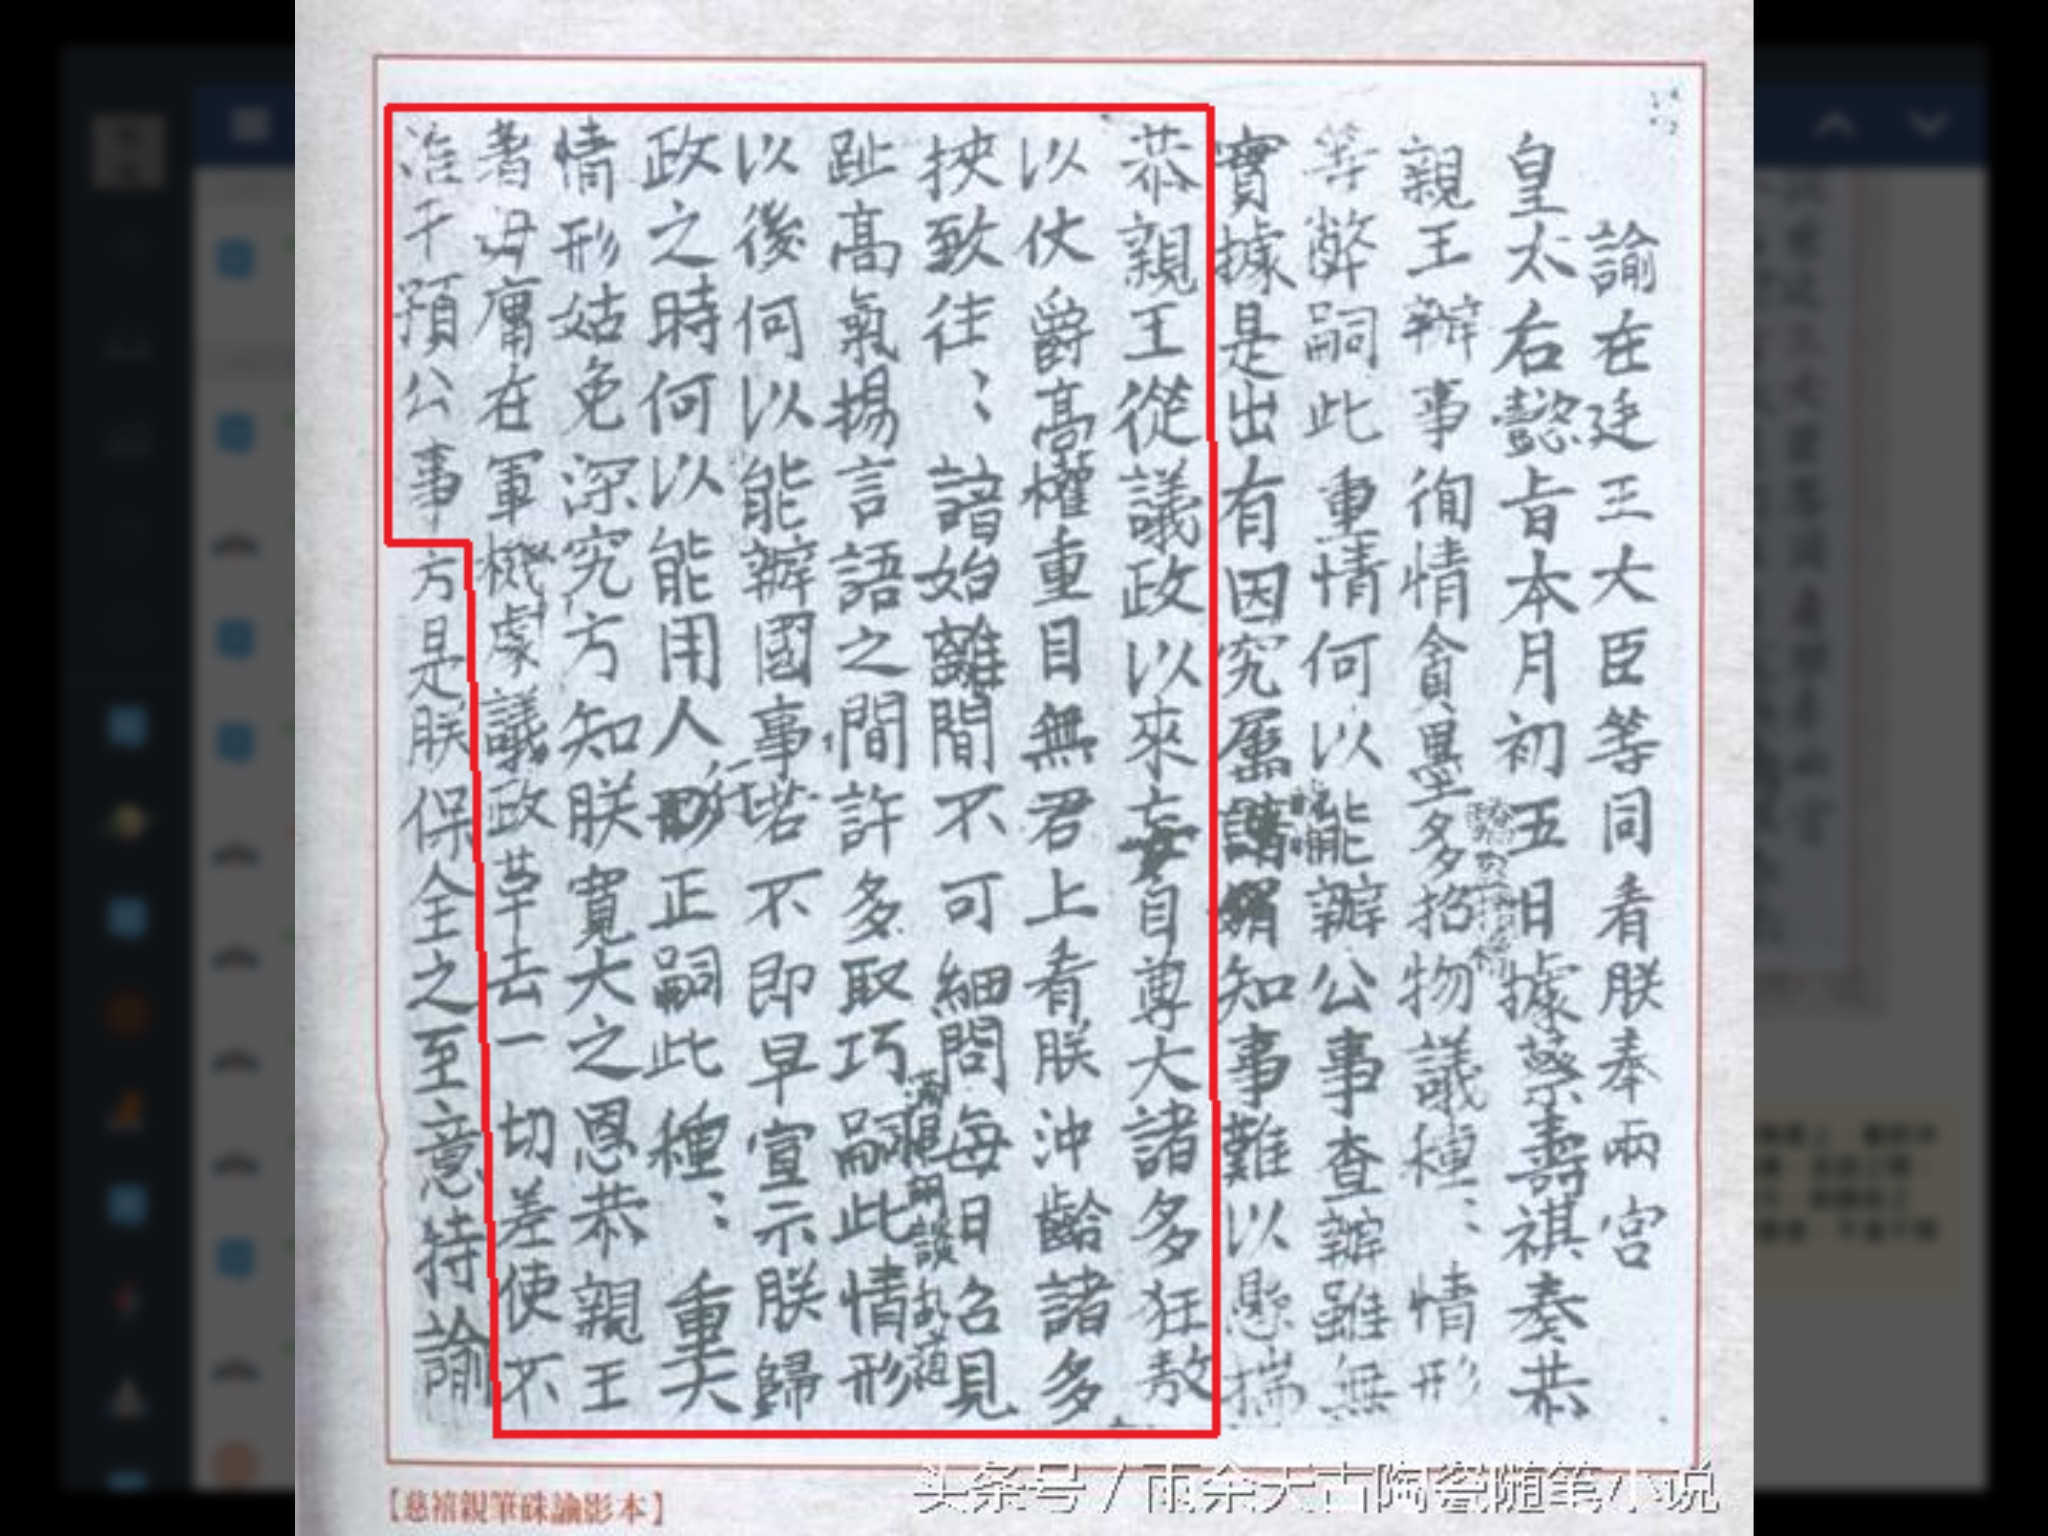 諭在廷王大臣等同看朕奉兩宮
皇太后懿旨本月初五日據蔡壽祺奏恭
親王辦事徇情貪墨多招物議種〻情形
等弊嗣此重情何以能辦公事查辦雖無
實據是出有因究屬知事難以懸揣
恭親王從議政以來妄自尊大諸多狂敖
以仗爵高權重目無君上看朕沖齡諸多
挾致往〻諳始離間不可細問每日召見
趾高氣揚言語之間許多取巧滿口胡談亂道嗣此情形
以後何以能辦國事若不即早宣示朕歸
政之時何以能用人行正嗣此種〻重大
情形姑免深究方知朕寬大之恩恭親王
著毋庸在軍機處議政革去一切差使不
准干預公事方是朕保全之至意特諭
【慈禧親筆硃諭影本】
头条号 / 雨余天古陶瓷随笔小说